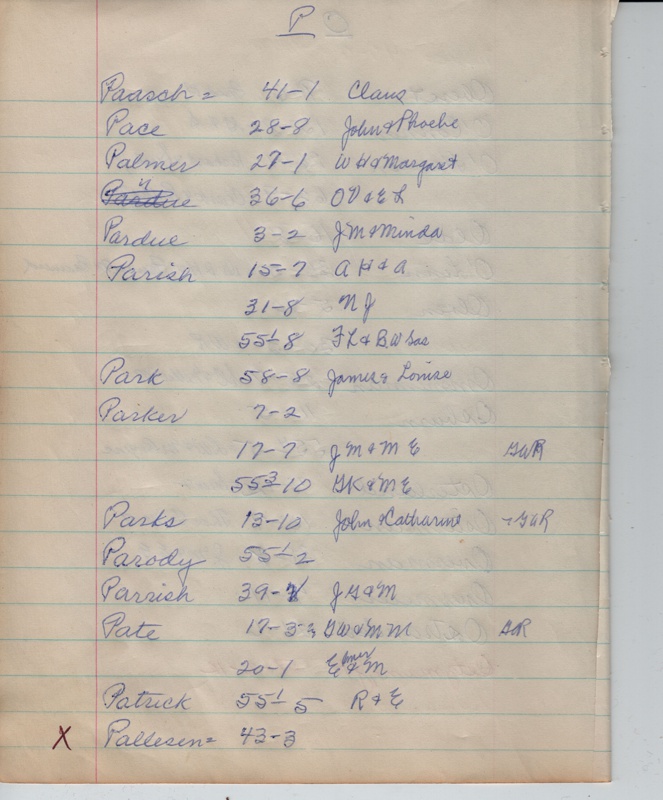 P
Paasch = 41-1 Claus
Pace 28-8 John & Phoebe
Palmer 27-1 W H & Margaret
36-6 O V & E L
Pardue 3-2 J M & Minda
Parish 15-7 A H & A
31-8 N J
55¹-8 F L & B W
Park 58-8 James & Louise
Parker 7-2
17-7 J M & M E GAR
55³-10 G K & M E
Parks 13-10 John & Catharine - GAR
Parody 55¹-2
Parrish 39- J G & M
Pate 17-3 = G W & M M GAR
20-1 Elmer & M
Patrick 55¹-5 R & E
X Pallesen = 43-3